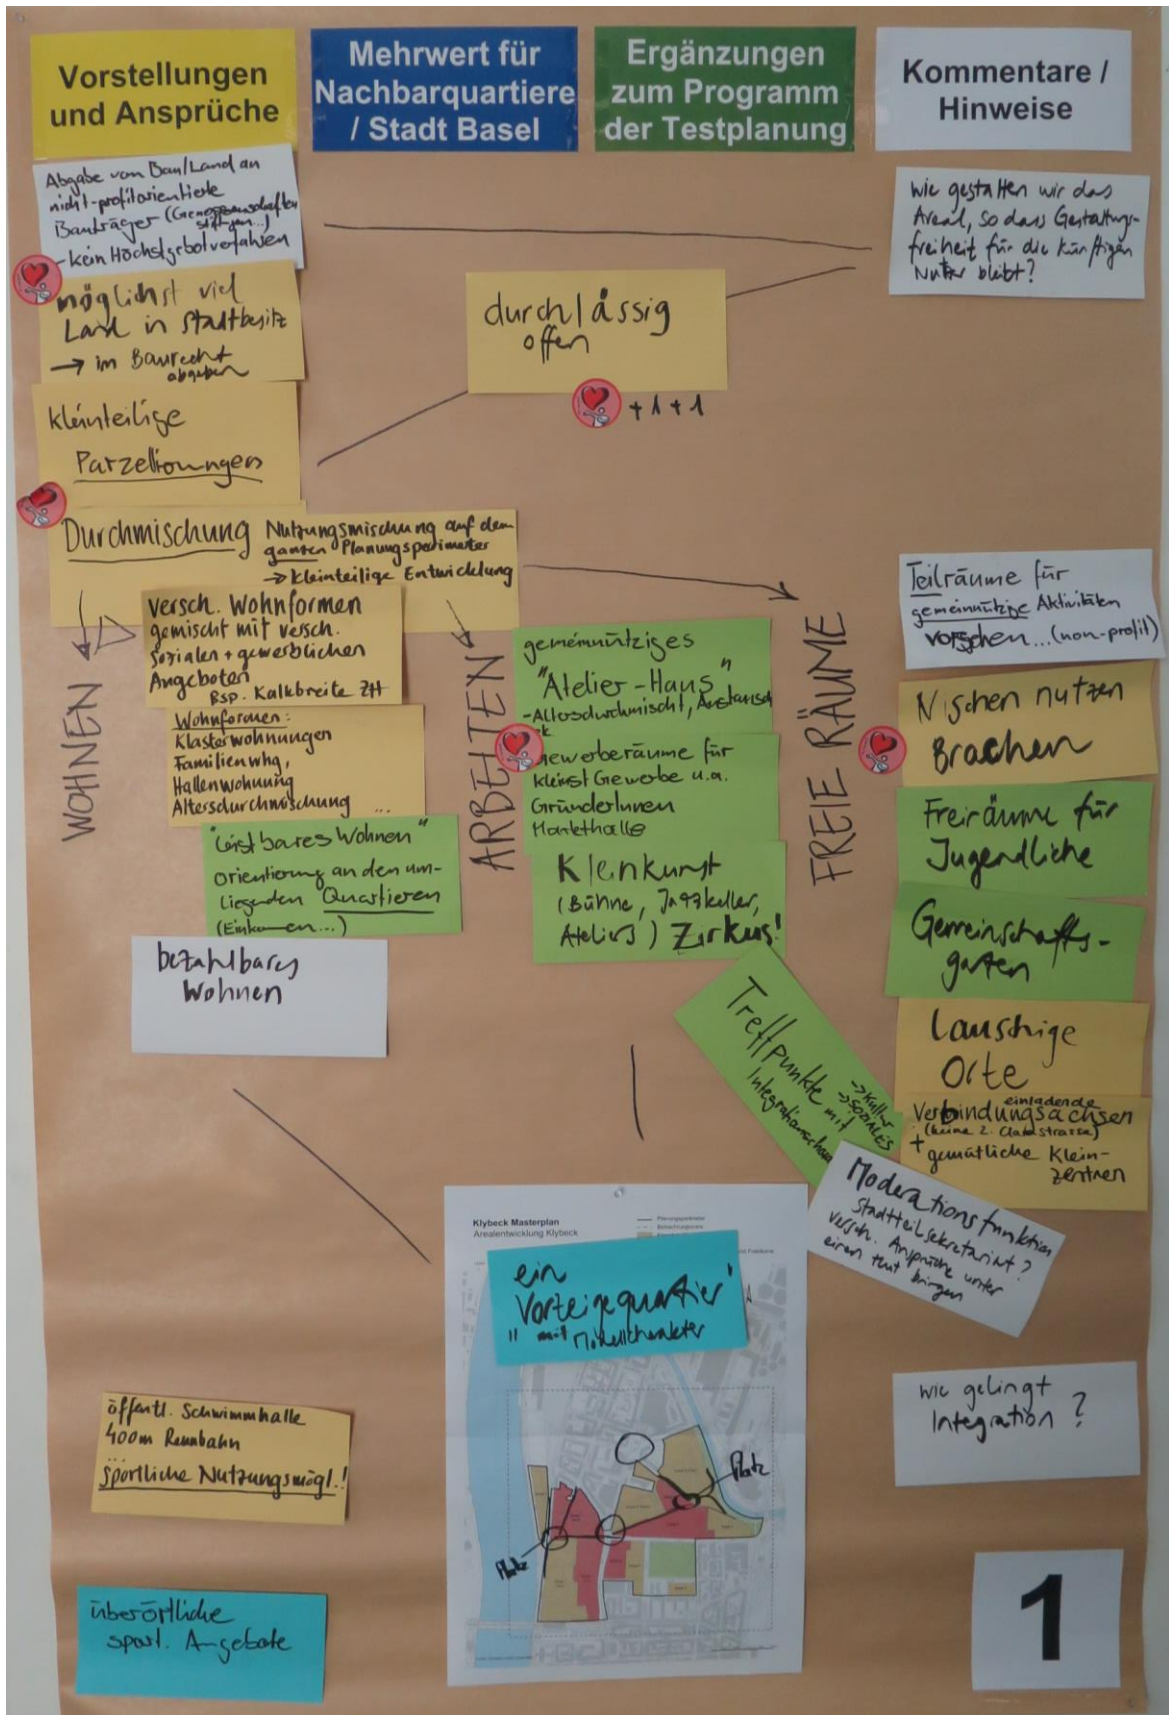 Vorstellungen
und Ansprüche
Mehrwert für
Nachbarquartiere
/ Stadt Basel
Ergänzungen
zum Programm
der Testplanung
Kommentare /
Hinweise
Abgabe von Bau/Land an
nicht-profitorientierte
Bauträger (Genossenschaften
Stiftgen...)
- kein Höchstgebotverfahren
möglichst viel
Land in Stadtbesitz
→ im Baurecht
abgeben
kleinteilige
Parzellierungen
Durchmischung
Nutzungsmischung auf dem
ganzen Planungsperimeter
→ kleinteilige Entwicklung
durchlässig
offen
+1+1
wie gestalten wir das
Areal, so dass Gestaltungs-
freiheit für die künftigen
Nutzer bleibt?
WOHNEN
versch. Wohnformen
gemischt mit versch.
sozialen + gewerblichen
Angeboten
Bsp. Kalkbreite ZH
Wohnformen:
Klasterwohnungen
Familienwhg,
Hallenwohnung
Altersdurchmischung ...
"Leistbares Wohnen"
orientierung an den um-
liegenden Quartieren
(Einkommen...)
bezahlbares
Wohnen
ARBEITEN
gemeinnütziges
"Atelier-Haus"
- Altersdurchmischt, Austausch
Gewerberäume für
kleinst Gewerbe u.a.
GründerInnen
Markthalle
Kleinkunst
(Bühne, Jazzkeller,
Ateliers) Zirkus!
Treffpunkte mit
→ Kultur
→ SOZIALES
FREIE RÄUME
Teilräume für
gemeinnützige Aktivitäten
vorsehen... (non-profit)
Nischen nutzen
Brachen
Freiräume für
Jugendliche
Gemeinschafts-
garten
Lauschige
Orte
einladende
Verbindungsachsen
(keine 2. Clarastrasse)
+ gemütliche Klein-
zentren
Moderationsfunktion
Stadtteilsekretariat?
versch. Ansprüche unter
einen Hut bringen
Klybeck Masterplan
Arealentwicklung Klybeck
Planungsperimeter
ein
"Vorzeigequartier"
mit Modellcharakter
Platz
Platz
öffentl. Schwimmhalle
400m Rennbahn
...
sportliche Nutzungsmögl.!
überörtliche
sport. Angebote
wie gelingt
Integration?
1